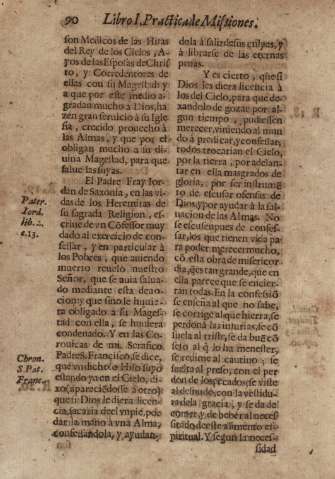 90 Libro I. Practica de Missiones.
son Medicos de las Hijas
del Rey de los Cielos, A-
yos de las Esposas de Chris-
to, y Corredentores de
ellas con su Magestad: y
a que por este medio a-
gradan mucho à Dios, ha-
zen gran servicio à su Igle-
sia, crecido provecho à
las Almas, y que por el
obligan mucho a su di-
uina Magestad, para que
salue las suyas.
El Padre Fray Jor-
dan de Saxonia, en las vi-
das de los Heremitas de
su sagrada Religion, es-
criue de vn Cõfessor muy
dado al exercicio de con-
fessar, y en particular à
los Pobres, que auiendo
muerto reuelò nuestro
Señor, que se auia salua-
do mediante esta deuo-
cion; y que sino le huuie-
ra obligado à su Mages-
tad con ella, se huuiera
condenado. Y en las Co-
ronicas de mi Serafico
Padre S. Francisco, se dice,
que vn dicho Hijo suyo
estando ya en el Cielo, di-
xo (apareciẽdose à otro)
que si Dios le diera licen-
cia, sacaria de el vn pie, por
dar la mano à vna Alma,
confessandola, y ayudan-
Pater.
Iord.
lib. 2.
c. 13.
Chron.
S. Pat.
Franc.
dola à salir de sus culpas, y
à librarse de las eternas
penas.
Y es cierto, que si
Dios les diera licencia à
los del Cielo, para que de-
xandolo de gozar por al-
gun tiempo, pudiessen
merecer, viniendo al mun-
do à predicar, y confessar;
todos trocarian el Cielo,
por la tierra, por adelan-
tar en ella mas grados de
gloria, por ser instrume-
to de escusar ofensas de
Dios, y por ayudar à la sal-
uacion de las Almas. No
se escusen pues de confes-
sar, los que tienen vida pa-
ra poder merecer mucho,
cõ esta obra de misericor-
dia, q̃ es tan grande, que en
ella parece que se encier-
ran todas. En la confessiõ
se enseña al que no sabe,
se corrige al que hierra, se
perdona las injurias, se cõ
suela al triste, se da buẽ cõ
sejo al q̃ lo ha menester,
se redime al cautiuo, se
suelta al preso, con el per-
don de los pecados; se viste
al desnudo, con la vestidu-
ra de la gracia, y se da de
comer, y de beber al neces-
sitado de este alimento es-
piritual. Y segun la neces-
sidad